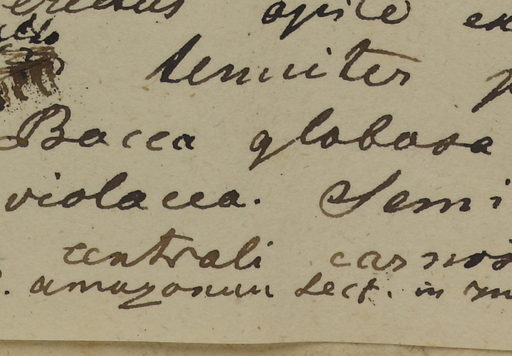 erectus apice ex
tenuiter p
Bacca globosa
violacea. Semi
centrali carnos
. amazonum Lect. in